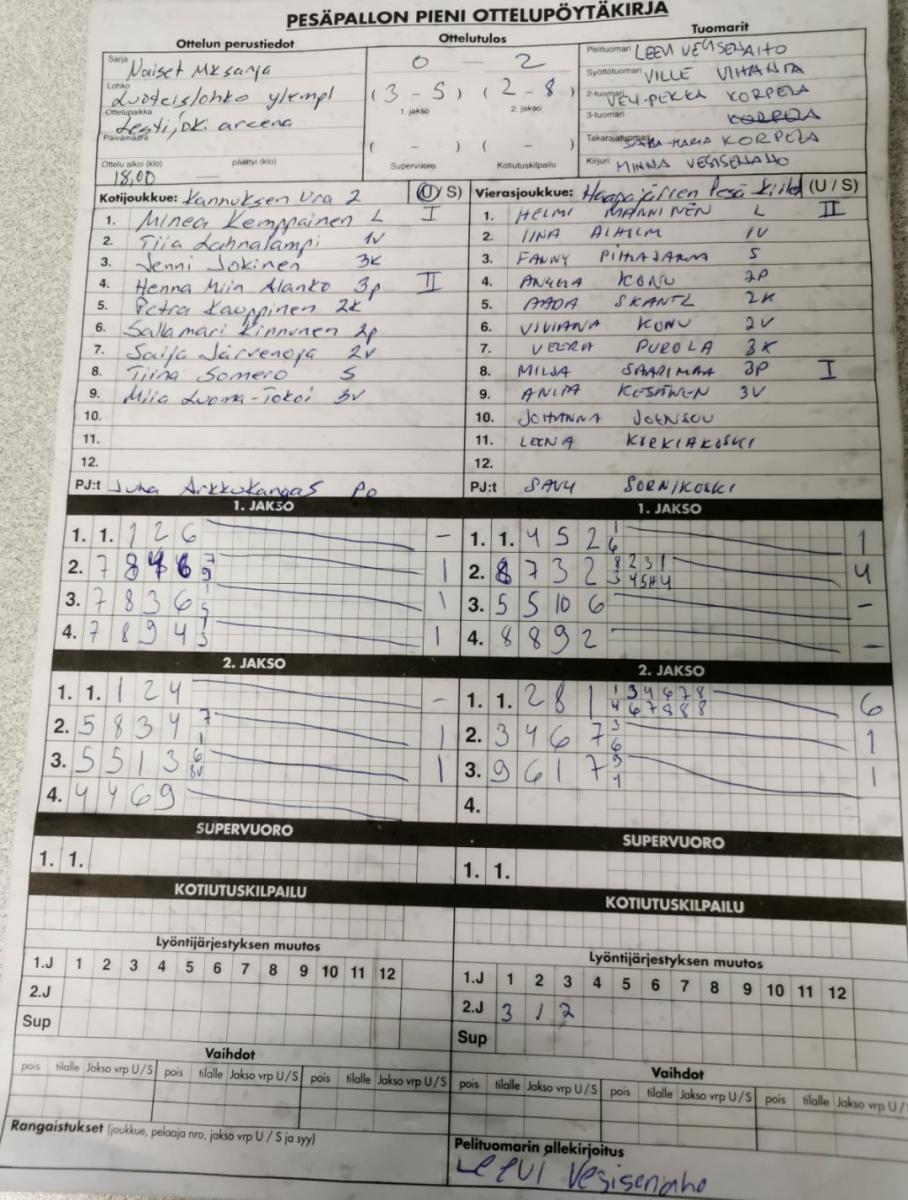 PESÄPALLON PIENI OTTELUPÖYTÄKIRJA
Ottelun perustiedot Ottelutulos Tuomarit
Sarja Naiset Mksarja 0 - 2 Pelituomari LEEVI VESISENAHO
Lohko Luoteislohko ylempi (3 - 5) (2 - 8) Syöttötuomari VILLE VIHANTA
Ottelupaikka Lestijoki areena 1. jakso 2. jakso 2-tuomari VELI-PEKKA KORPELA
Päivämäärä 3-tuomari KORPELA
( - ) ( - ) Takarajatuomari SARA-MARIA KORPELA
Ottelu alkoi (klo) 18,00 päättyi (klo) Supervuoro Kotiutuskilpailu Kirjuri MINNA VESISENAHO
Kotijoukkue: Kannuksen Ura 2 (U / S) Vierasjoukkue: Haapajärven Pesä (U / S)
1. Minea Kemppainen L I 1. HELMI MANNINEN L II
2. Tiia Lahnalampi 1V 2. IINA 1V
3. Jenni Jokinen 3K 3. FANNY PIHAJARMA S
4. Henna Miin Alanko 3p II 4. KONU 2P
5. Petra Kauppinen 2K 5. AADA 2K
6. Sallamari Kinnunen 2p 6. VIVIANA KONU 2V
7. Saija Järvenoja 2V 7. VEERA PUROLA 3K
8. Tiina Somero S 8. MILJA SAARIMAA 3P I
9. Miia Luoma-Tokoi 3V 9. 3V
10. 10. JOHANNA JOENSUU
11. 11. LEENA
12. 12.
PJ:t Juha Arkkukangas Po PJ:t SORNIKOSKI
1. JAKSO 1. JAKSO
1. 1. 1 2 6 - 1. 1. 4 5 2 1 6 1
2. 7 8 6 7 9 1 2. 8 7 3 2 8 2 3 1 4
3. 7 8 3 6 1 5 1 3. 5 5 10 6 -
4. 7 8 9 4 1 3 1 4. 8 8 9 2 -
2. JAKSO 2. JAKSO
1. 1. 1 2 4 - 1. 1. 2 8 1 1 3 4 6 7 8 6
4 6 7 8 8 8
2. 5 8 3 4 7 1 1 2. 3 4 6 7 3 6 1
3. 5 5 1 3 6 8V 1 3. 9 6 1 7 9 1 1
4. 4 4 6 9 4.
SUPERVUORO SUPERVUORO
1. 1. 1. 1.
KOTIUTUSKILPAILU KOTIUTUSKILPAILU
Lyöntijärjestyksen muutos Lyöntijärjestyksen muutos
1.J 1 2 3 4 5 6 7 8 9 10 11 12 1.J 1 2 3 4 5 6 7 8 9 10 11 12
2.J 2.J 3 1 2
Sup Sup
Vaihdot Vaihdot
pois tilalle Jakso vrp U/S pois tilalle Jakso vrp U/S pois tilalle Jakso vrp U/S pois tilalle Jakso vrp U/S pois tilalle Jakso vrp U/S pois tilalle Jakso vrp U/
Rangaistukset (joukkue, pelaaja nro, jakso vrp U / S ja syy) Pelituomarin allekirjoitus
Leevi Vesisenaho